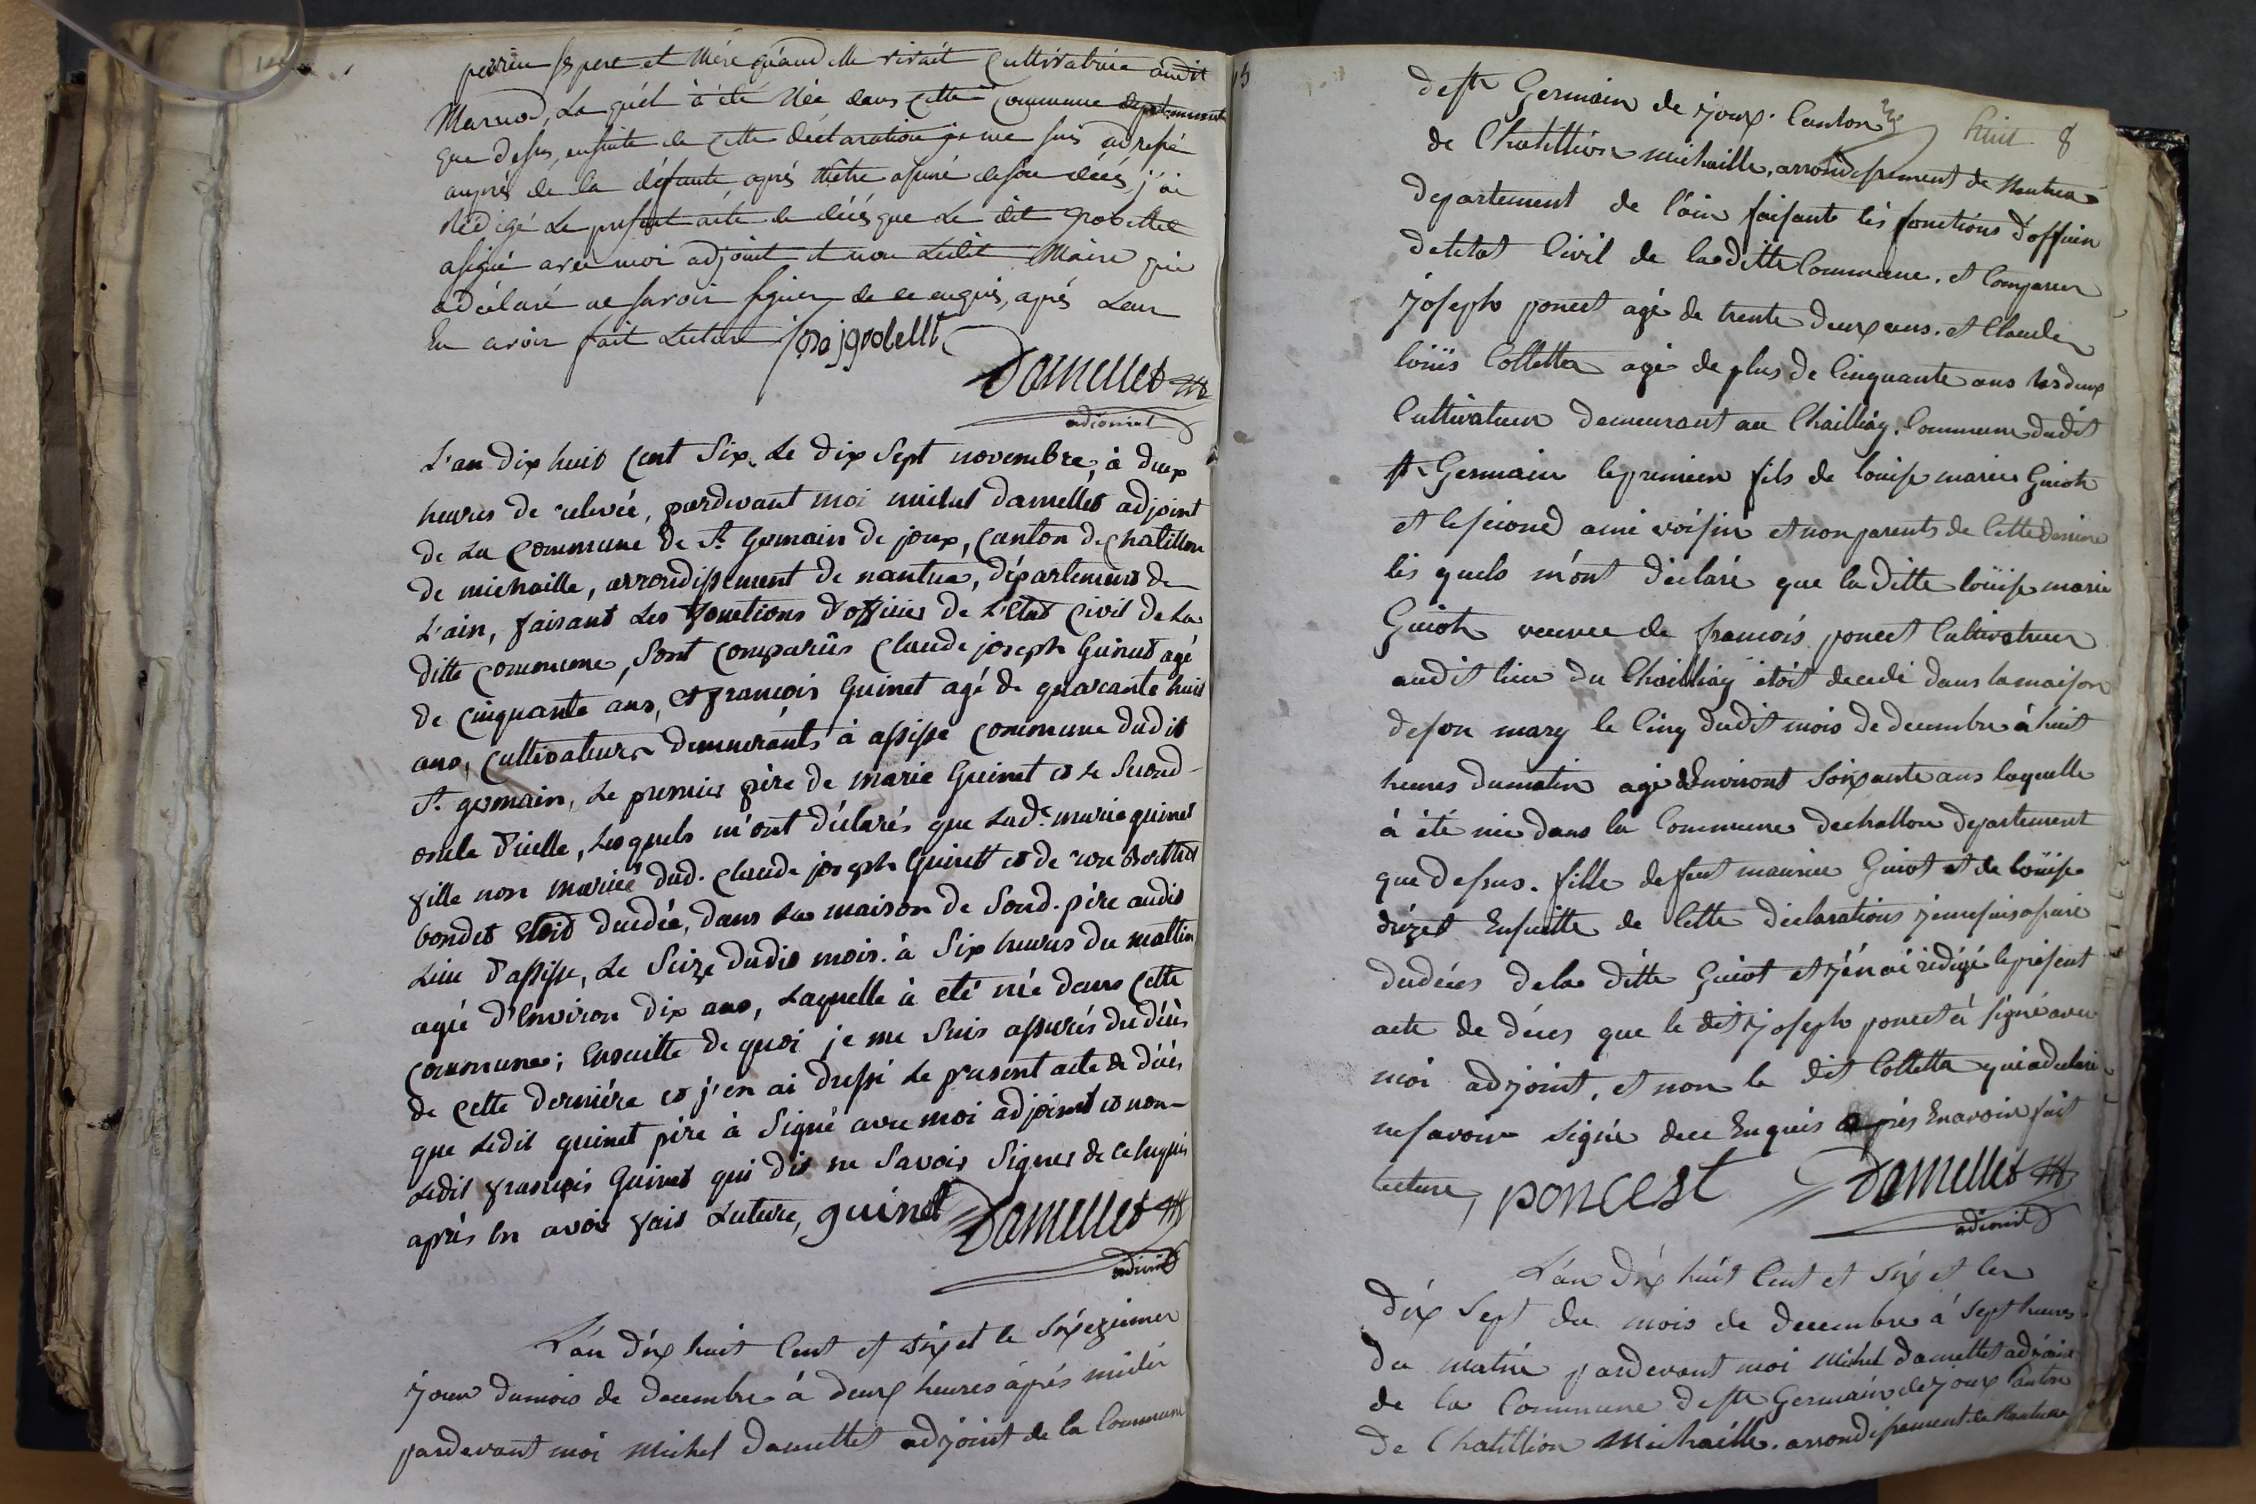 ses pere et Mére quand elle vivait Cultivatrice audit
Marnod, La quél à été Née dans Cette Commune departement
que dessus, ensuite de Cette déclaration je me suis adressé
auprés de la défunte, aprés m'étre assuré de son décés, j'ai
Rédigé Le present acte de décés que Le dit Grobellet
a signé avec moi adjoint et non Ledit Maire qui
a déclaré ne savoir signer de ce enquis, aprés Leur
En avoir fait Lecture
Damellet
adjoint
L'an dix huit Cent Six, Le dix Sept novembre, à deux
heures de relevée, pardevant moi michel damellet adjoint
de La Commune de St. Germain de joux, Canton de Chatillon
de michaille, arrondissement de nantua, département de
L'ain, faisant Les fonctions d'officier de L'Etat Civil de La
ditte Commune, Sont Comparûs Claude joseph Guinet agé
de Cinquante ans, et françois Guinet agé de quarante huit
ans, Cultivateurs demeurants à assise Commune dudit
St. germain, Le premier pére de marie Guinet et Le Second
oncle d'icelle, Lesquels m'ont déclarés que Lad.e marie guinet
fille non mariée dud. Claude joseph Guinet et de
bondet Etoit decedée, dans La maison de Sond. pére audit
Lieu d'assise, Le Seize dudit mois. à Six heures du mattin
agée d'Environ dix ans, Laquelle à eté née dans Cette
Commune; Ensuitte de quoi je me Suis assurés du décés
de Cette derniére et j'en ai dressé Le present acte de décés
que Ledit guinet pére à Signé avec moi adjoint et non
Ledit françois Guinet qui dit ne Savoir Signer de ce Enquis
aprés En avoir fait Lecture, guinet Damellet
adjoint
L'an dix huit Cent et six et le Sixezieme
jour du mois de decembre à deux heures aprés midi
pardevant moi Michel damellet adjoint de la Commune
huit 8
de St Germain de joux. Canton
de Chatillion michaille, arrondissement de Nantua
departement de l'ain faisant les fonctions d'officier
de l'etat Civil de la ditte Commune. et Comparu
joseph poncet agé de trente deux ans. et Claude
loüis Colletta agé de plus de Cinquante ans les deux
Cultivateur demeurant au Chailliay. Commune dudit
St Germain le premier fils de louise marie Guiot
et le second ami voisin et non parents de Cette derniere
les quels m'ont déclaré que la ditte loüise marie
Guiot veuve de francois poncet Cultivateur
audit lieu du Chailliay étoit decedé dans la maison
de son mary le Cinq dudit mois de decembre à huit
heures du matin agé d'Environt Soixante ans laquelle
à été née dans la Commune dechallon departement
que dessus. fille de feut maurice Guiot et de loüise
Ensuitte de Cette déclarations je me suis assuré
du déces de la ditte Guiot et j'en ai rédigé le présent
acte de déces que le dit joseph poncet à signé avec
moi adjoint, et non le dit Colletta qui a declaré
ne savoir signé de ce Enquis aprés En avoir fait
lecture, poncest Damellet
adjoint
L'an dix huit Cent et Six et le
dix Sept du mois de decembre à Sept heures
du matin pardevant moi Michel damellet adjoint
de la Commune de St Germain de joux Canton
de Chatillion Michaille. arrondissement de Nantua